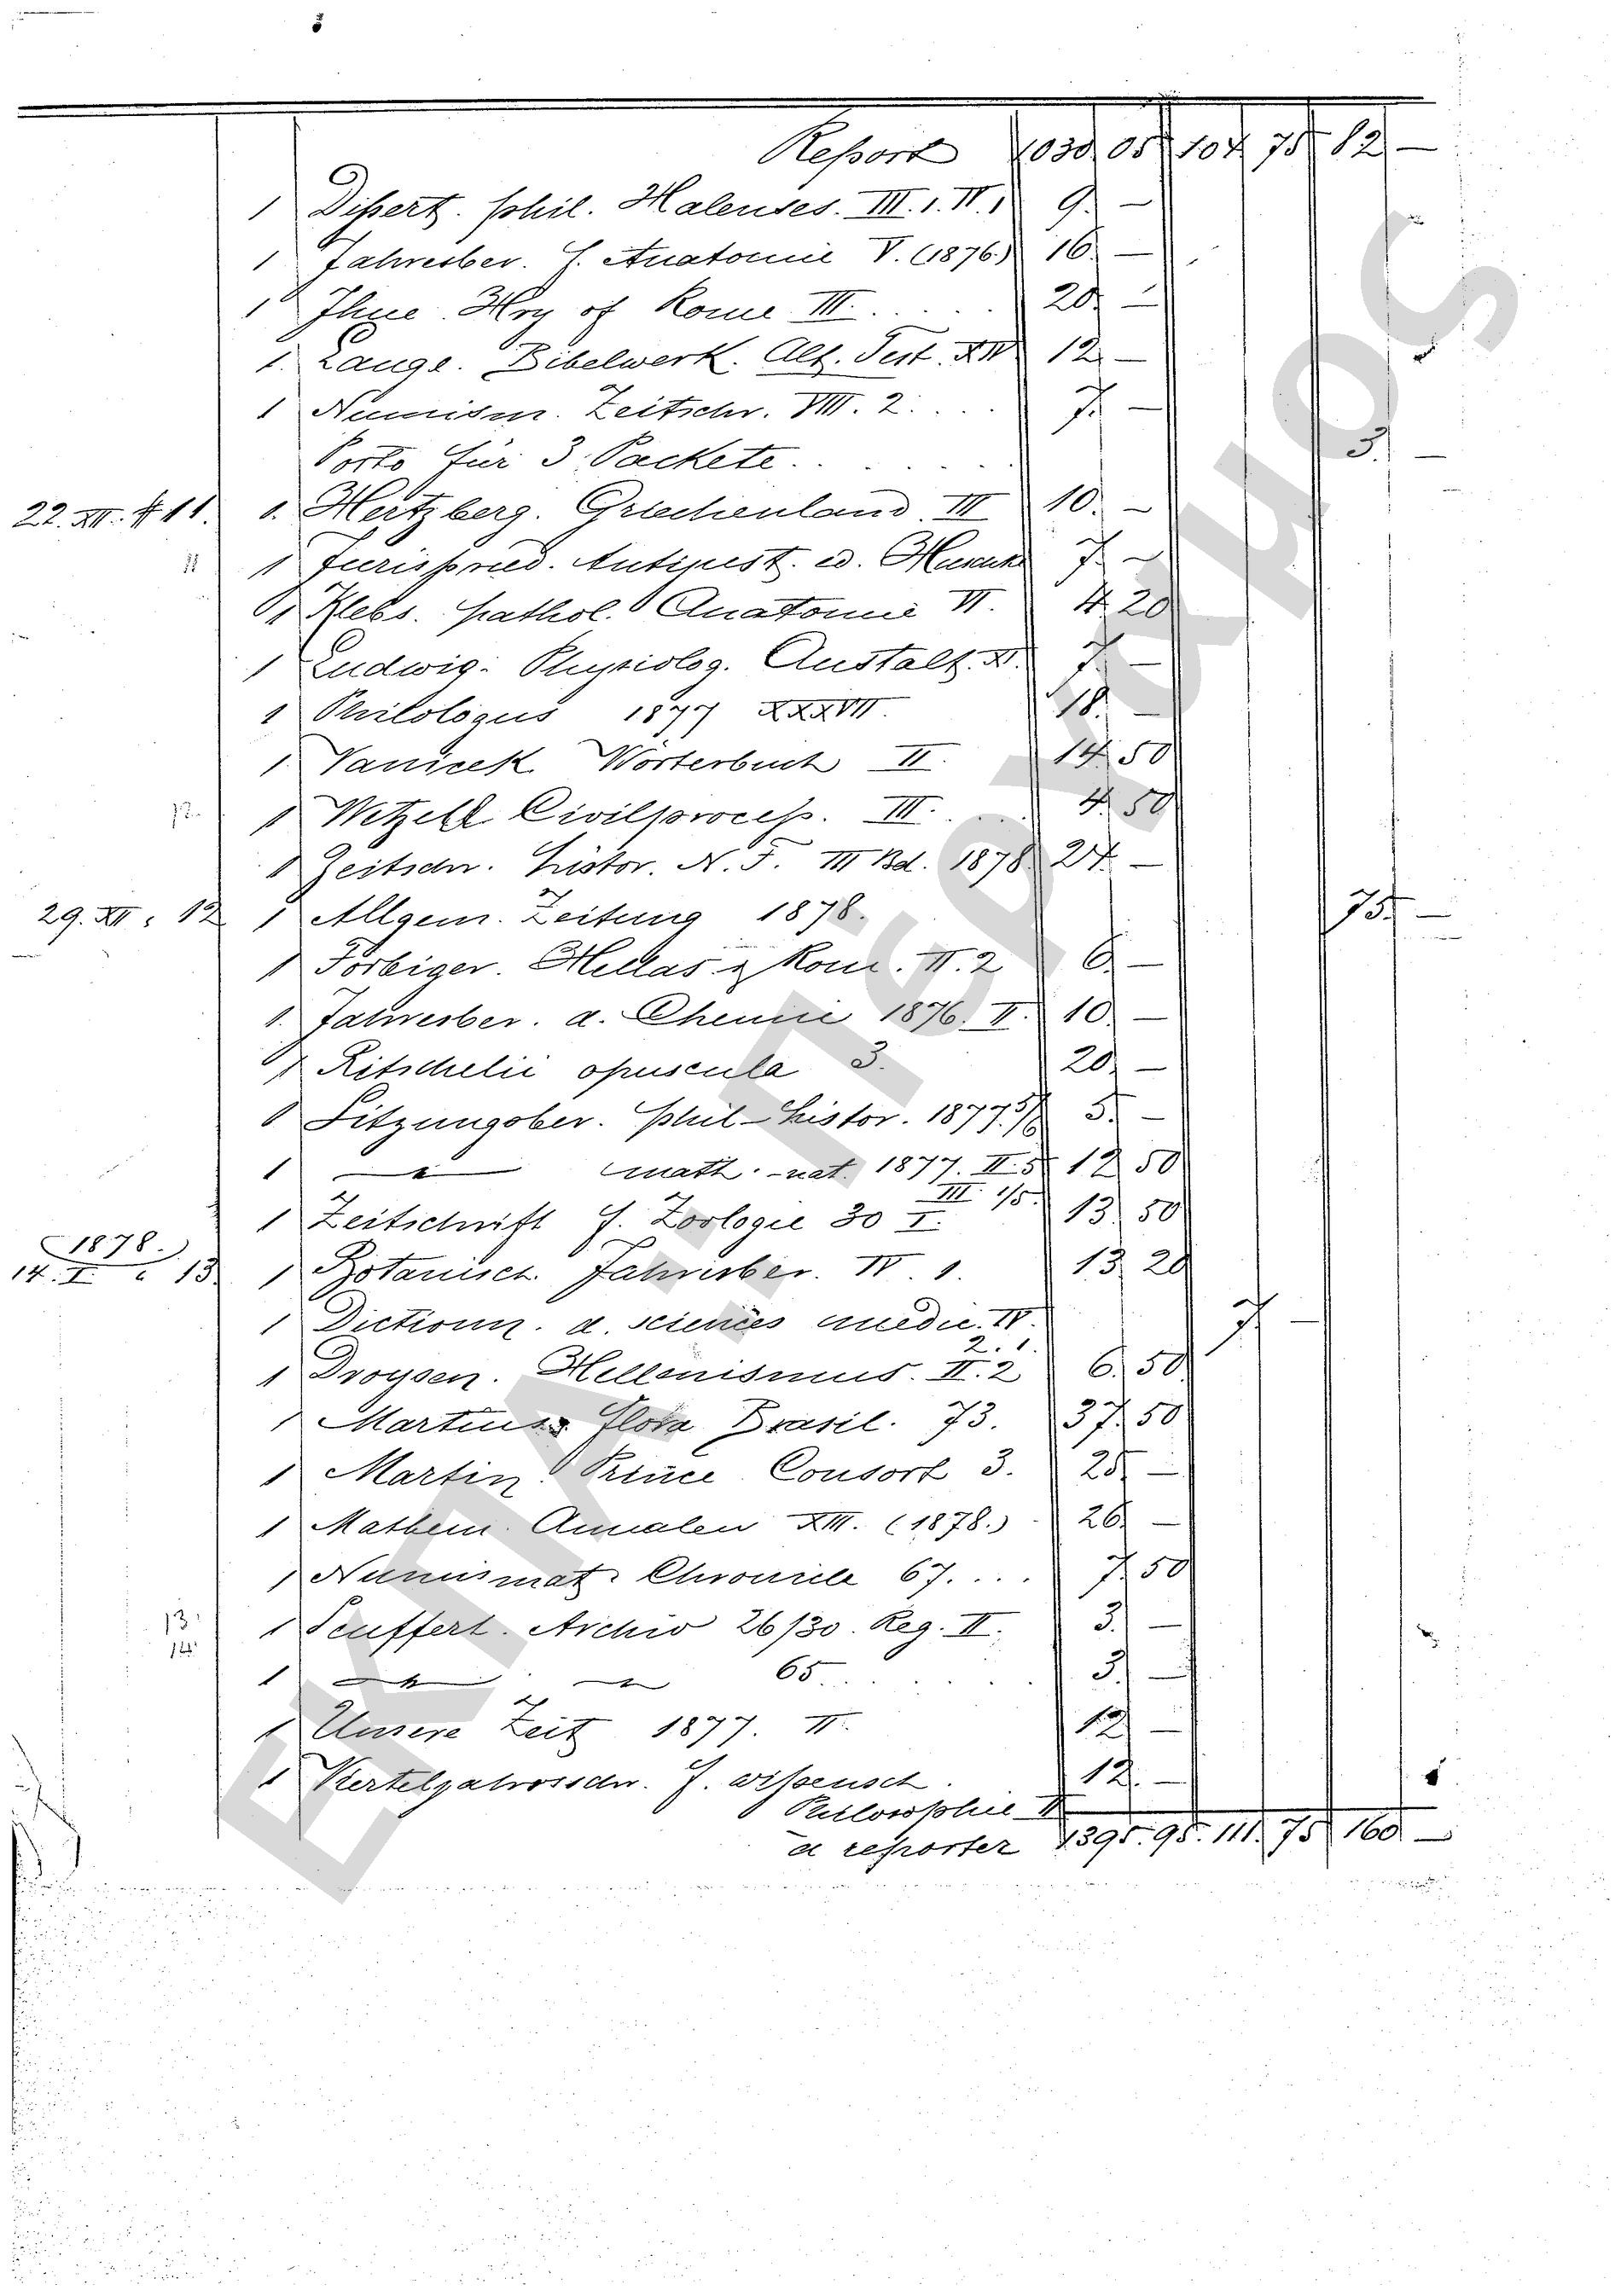 Report 1030 05 104 75 82 —
1 Dissert. phil. Halenses. III. 1. IV. 1 9. —
1 Jahresber. f. Anatomie V. (1876.) 16 —
1 Ihne. Hry of Rome III. . . . . 20. —
1. Lange. Bibelwerk. Alt. Test. XIV 12 —
1 Numism. Zeitschr. VIII. 2. . . . 7. —
Porto für 3 Packete. . . . . . 3. —
22. XII. # 11. 1. Hertzberg. Griechenland III 10. —
11 1 Jurisprud. Antejust. ed. Huschke 7 —
1 Klebs. pathol. Anatomie VI. 4. 20
1 Ludwig. Physiolog. Anstalt. XI. 7. —
1 Philologus 1877 XXXVII. 18. —
1. Vanicek Wörterbuch II. 14. 50
12. 1 Wetzell Civilprocess. III. . . . 4. 50
1 Zeitschr. histor. N. F. III Bd. 1878. 24. —
29. XII. " 12 1 Allgem. Zeitung 1878. 75. —
1 Forbiger. Hellas & Rom. II. 2 6. —
1. Jahresber. d. Chemie 1876. II. 10. —
1 Ritschelii opuscula 3. 20. —
1 Sitzungsber. phil-histor. 1877. 5/6 5. —
1 — " — math.-nat. 1877. II. 5 12 50
III. 1/5.
1 Zeitschrift f. Zoologie 30 I. 13. 50
(1878.)
14. I. " 13. 1 Botanisch. Jahresber. IV. 1. 13. 20
1 Dictionn. d. sciences medic. IV. 7. —
2. 1.
1 Droysen. Hellenismus. II. 2 6. 50
1 Martius. Flora Brasil. 73. 37. 50
1 Martin. Prince Consort 3. 25. —
1 Mathem. Annalen XIII. (1878.) 26. —
1 Numismat. Chronicle 67. . . . 7. 50
13. 1 Seuffert. Archiv 26/30. Reg. II. 3. —
14.
1 — " — — " — 65. . . . . . 3. —
1 Unsere Zeit 1877. II. 12. —
1 Vierteljahrsschr. f. wissensch. 12. —
Philosophie II
a reporter 1395. 95. 111. 75 160 —